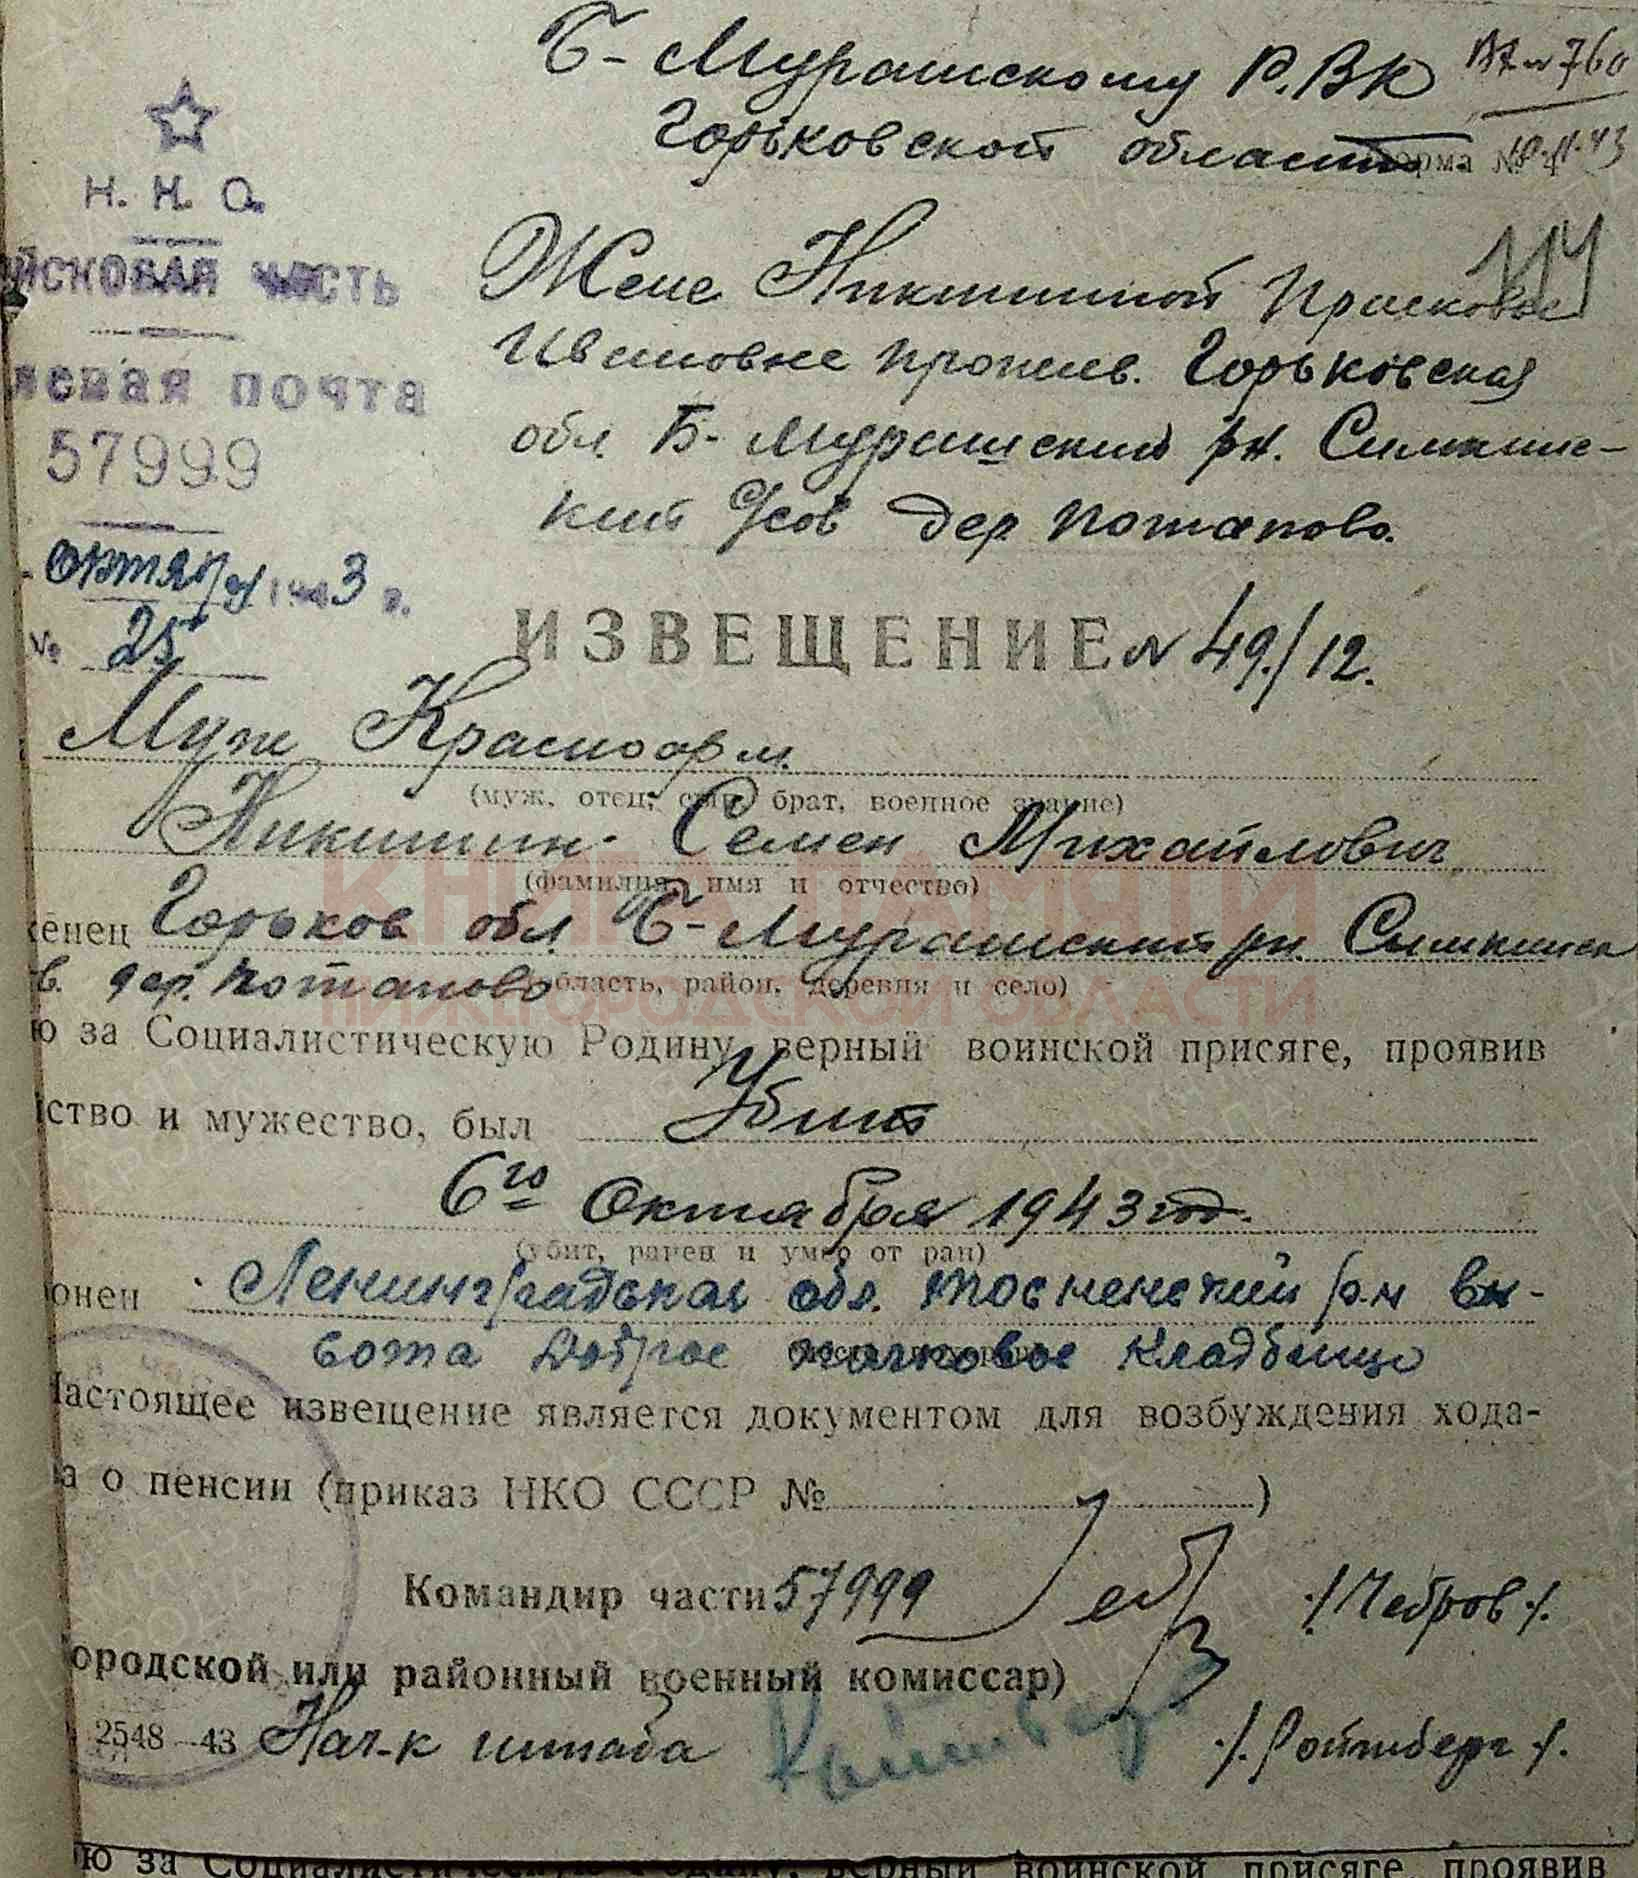 Б-Мурашкому Р.ВК Вх. № 760
Горьковской область Форма № 4 18.11.43
Н. К. О.
114
ЙСКОВАЯ ЧАСТЬ
Жене Никитиной Прасковье
Ивановне прожив. Горьковская
левая почта
57999
обл. Б-Мурашский рн. Симкинс-
кий с/сов дер Потапово.
октября 1943 г.
№ 25
ИЗВЕЩЕНИЕ № 49./12.
Муж Красноарм.
(муж, отец, сын, брат, военное звание)
Никитин Семен Михайлович
(фамилия, имя и отчество)
женец Горьков обл. Б-Мурашский рн. Симкинск
в. дер. Потапово
(область, район, деревня и село)
КНИГА ПАМЯТИ
НИЖЕГОРОДСКОЙ ОБЛАСТИ
ю за Социалистическую Родину, верный воинской присяге, проявив
ство и мужество, был Убит
6го Октября 1943 год.
(убит, ранен и умер от ран)
онен Ленинградская обл. Тосненский р-н вы-
сота Доброе кладбище
Настоящее извещение является документом для возбуждения хода-
ва о пенсии (приказ НКО СССР № )
Командир части 57999 /Чебров/.
ородской или районный военный комиссар)
2548—43 Нач-к штаба /Ройтберг/.
ю за Социалистическую Родину, верный воинской присяге, проявив